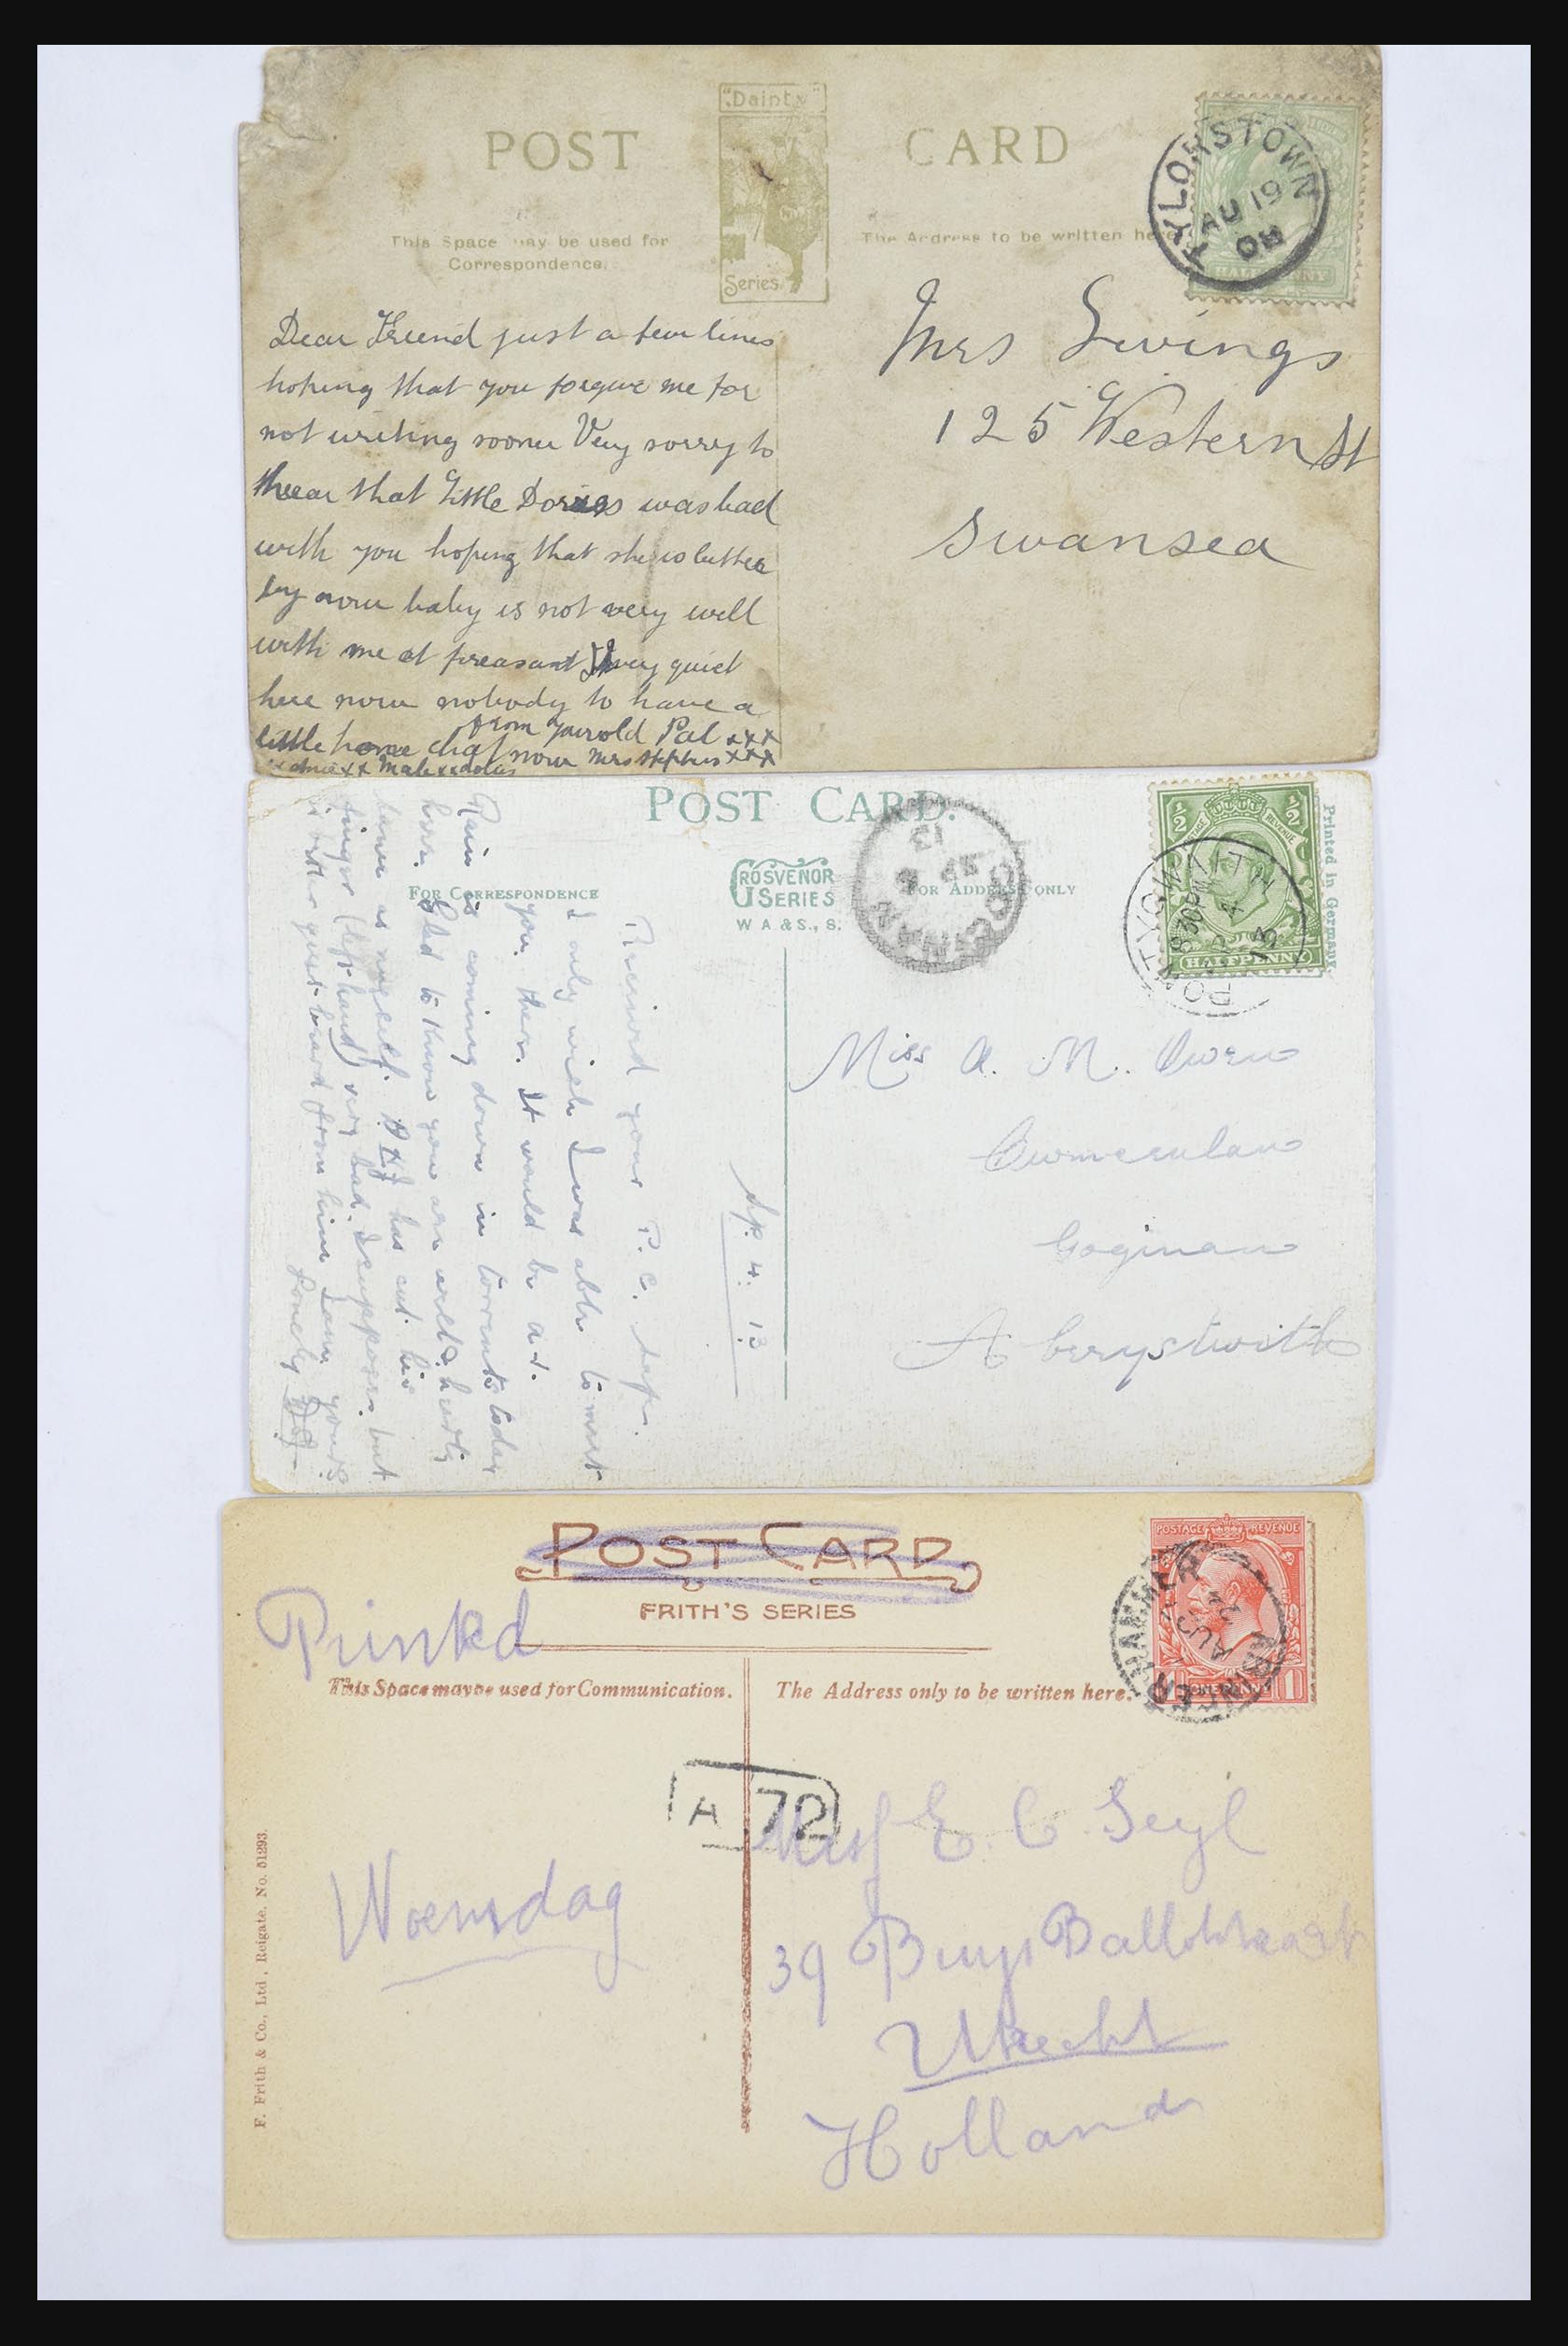 "Dainty"
POST CARD
Series.
This Space may be used for
Correspondence.
The Address to be written here
TYLORSTOWN
AU 19
08
HALFPENNY
Dear Friend just a few lines
hoping that you forgive me for
not writing sooner Very sorry to
hear that Little Doris was bad
with you hoping that she is better
by now baby is not very well
with me at preasant very quiet
here now nobody to have a
little home chat now
from your old Pal xxx
Mrs Stephens xxx
Mrs Livings
125 Western St
Swansea
POST CARD.
GROSVENOR
SERIES
W A & S., S.
FOR CORRESPONDENCE
FOR ADDRESS ONLY
Printed in Germany
POSTAGE REVENUE
½ ½
HALFPENNY
8 30 PM
4
13
GOGINAN
SP
13
Sp. 4. 13
Received your P. C. safe.
I only wish I was able to meet
you there. It would be a 1.
Rain is coming down in torrents today
here. Glad to know you are well & hearty
same as myself. has cut his
finger (left hand) very bad. I suppose but
is better guest heard from him I am yours
Lonely
Miss A. M. Owen
Goginan
Aberystwith
POST CARD
FRITH'S SERIES
Printed
This Space may be used for Communication.
The Address only to be written here.
POSTAGE REVENUE
1 ONE PENNY 1
AU
A 72
F. Frith & Co., Ltd., Reigate. No. 51293.
Woensdag
Miss E. C. Seyl
39 Buys Ballotstraat
Utrecht
Holland